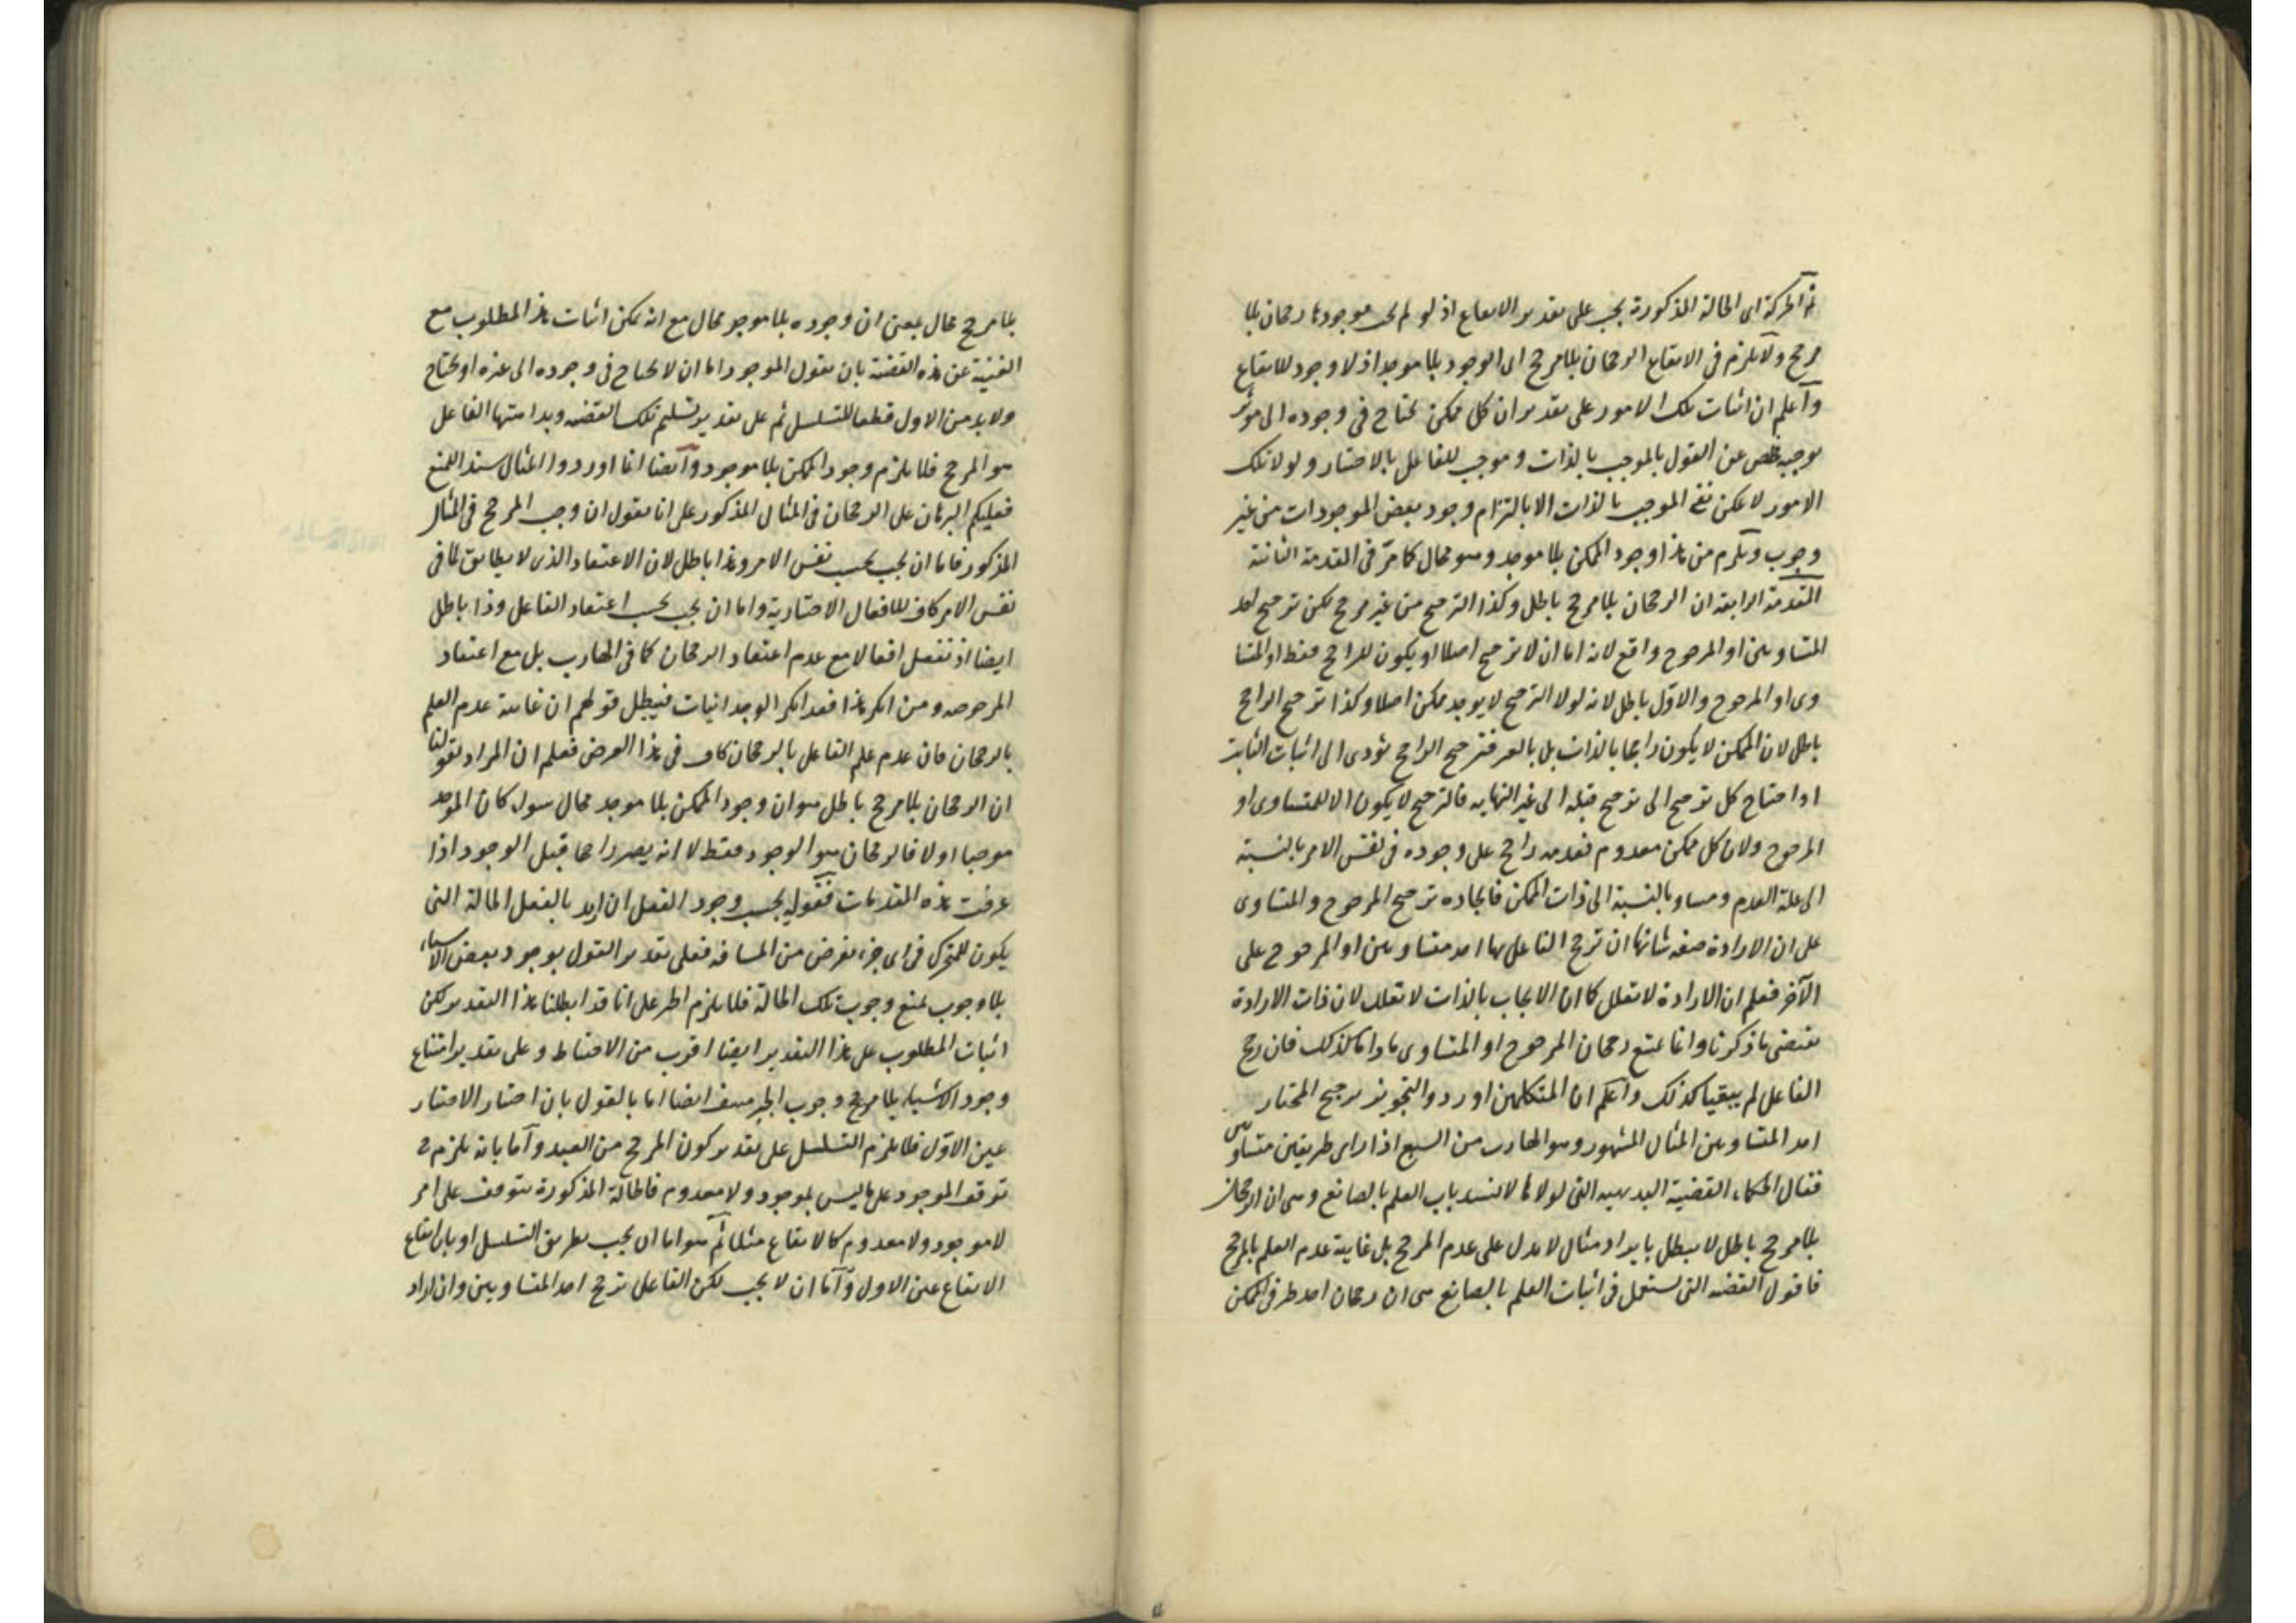 ثم الحركة اى الحالة المذكورة يجب على تقدير الايقاع اذ لو لم يجب موجودها رجحان بلا
مرجح ولا يلزم فى الايقاع الرجحان بلا مرجح اى الوجود بلا موجد اذ لا وجود للايقاع
واعلم ان اثبات تلك الامور على تقدير ان كل ممكن يحتاج فى وجوده الى مؤثر
يوجبه مخلص عن القول بالموجب بالذات وموجب للفاعل بالاختيار ولولا تلك
الامور لا يمكن نفى الموجب بالذات الا بالتزام وجود بعض الموجودات من غير
وجوب ويلزم من هذا وجود الممكن بلا موجد وهو محال كما مر فى المقدمة الثانية
المقدمة الرابعة ان الرجحان بلا مرجح باطل وكذا الترجيح من غير مرجح لكن ترجيح احد
المتساويين او المرجوح واقع لانه اما ان لا ترجيح اصلا او يكون للراجح فقط او المتسا
وى او المرجوح والاول باطل لانه لولا الترجيح لا يوجد ممكن اصلا وكذا ترجيح الراجح
باطل لان الممكن لا يكون راجحا بالذات بل بالغير فترجيح الراجح يؤدى الى اثبات الثابت
او احتياج كل ترجيح الى ترجيح قبله الى غير النهايه فالترجيح لا يكون الا للمتساوى او
المرجوح ولان كل ممكن معدوم فعدمه راجح على وجوده فى نفس الامر بالنسبة
الى علة العدم ومساو بالنسبة الى ذات الممكن فايجاده ترجيح المرجوح والمتساوى
على ان الارادة صفة شانها ان ترجح الفاعل بها احد متساويين او المرجوح على
الآخر فعلم ان الارادة لا تعلل كما ان الايجاب بالذات لا تعلل لان ذات الارادة
تقتضى ما ذكرنا وانما يمتنع رجحان المرجوح او المتساوى ما داما كذلك فان رجح
الفاعل لم يبقيا كذلك واعلم ان المتكلمين اوردوا لتجويز ترجيح المختار
احد المتساويين المثال المشهور وهو الهارب من السبع اذا راى طريقين متساويين
فقال الحكماء القضية البديهية التى لولاها لانسد باب العلم بالصانع وهى ان الرجحان
بلا مرجح باطل لا يبطل بايراد مثال لا يدل على عدم المرجح بل غايته عدم العلم بالمرجح
فاقول القضيه التى تستعمل فى اثبات العلم بالصانع هى ان رجحان احد طرفى الممكن
بلا مرجح محال بمعنى ان وجوده بلا موجد محال مع انه يمكن اثبات هذا المطلوب مع
الغنية عن هذه القضية بان نقول الموجود اما ان لا يحتاج فى وجوده الى غيره او يحتاج
ولا بد من الاول قطعا للتسلسل ثم على تقدير تسليم تلك القضيه وبداهتها الفاعل
هو المرجح فلا يلزم وجود الممكن بلا موجود وايضا انما اوردوا المثال سندا للمنع
فعليكم البرهان على الرجحان فى المثال المذكور على انا نقول ان وجب المرجح فى المثال
المذكور فاما ان يجب بحسب نفس الامر وهذا باطل لان الاعتقاد الذى لا يطابق لما فى
نفس الامر كاف للافعال الاختيارية واما ان يجب بحسب اعتقاد الفاعل وذا باطل
ايضا اذ تفعل افعالا مع عدم اعتقاد الرجحان كما فى الهارب بل مع اعتقاد
المرجوحه ومن انكر هذا فقد انكر الوجدانيات فيبطل قولهم ان غايته عدم العلم
بالرجحان فان عدم علم الفاعل بالرجحان كاف فى هذا الغرض فعلم ان المراد بقولنا
ان الرجحان بلا مرجح باطل هو ان وجود الممكن بلا موجد محال سواء كان الموجد
موجبا او لا فالرجحان هو الوجود فقط لا انه يصير راجحا قبل الوجود اذا
عرفت هذه المقدمات فقوله يجب وجود الفعل ان اريد بالفعل الحالة التى
يكون للمتحرك فى اى جزء يفرض من المسافه فعلى تقدير القول بوجود بعض الاشياء
بلا وجوب نمنع وجوب تلك الحالة فلا يلزم الجبر على انا قد ابطلنا هذا التقدير لكن
اثبات المطلوب على هذا التقدير ايضا اقرب من الاحتياط وعلى تقدير امتناع
وجود الاشياء بلا مرجح وجوب الجبر منتف ايضا اما بالقول بان اختيار الاختيار
عين الاول فلا يلزم التسلسل على تقدير كون المرجح من العبد واما بانه يلزم ح
توقف الموجود على ما ليس بموجود ولا معدوم فالحالة المذكورة تتوقف على امر
لا موجود ولا معدوم كالايقاع مثلا ثم هو اما ان يجب بطريق التسلسل او بان ايقاع
الايقاع عين الاول واما ان لا يجب لكن الفاعل ترجح احد المتساويين وان اراد